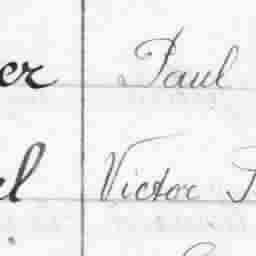 er Paul
el Victor